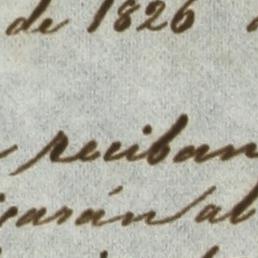 de 1826
reciban
icarán al